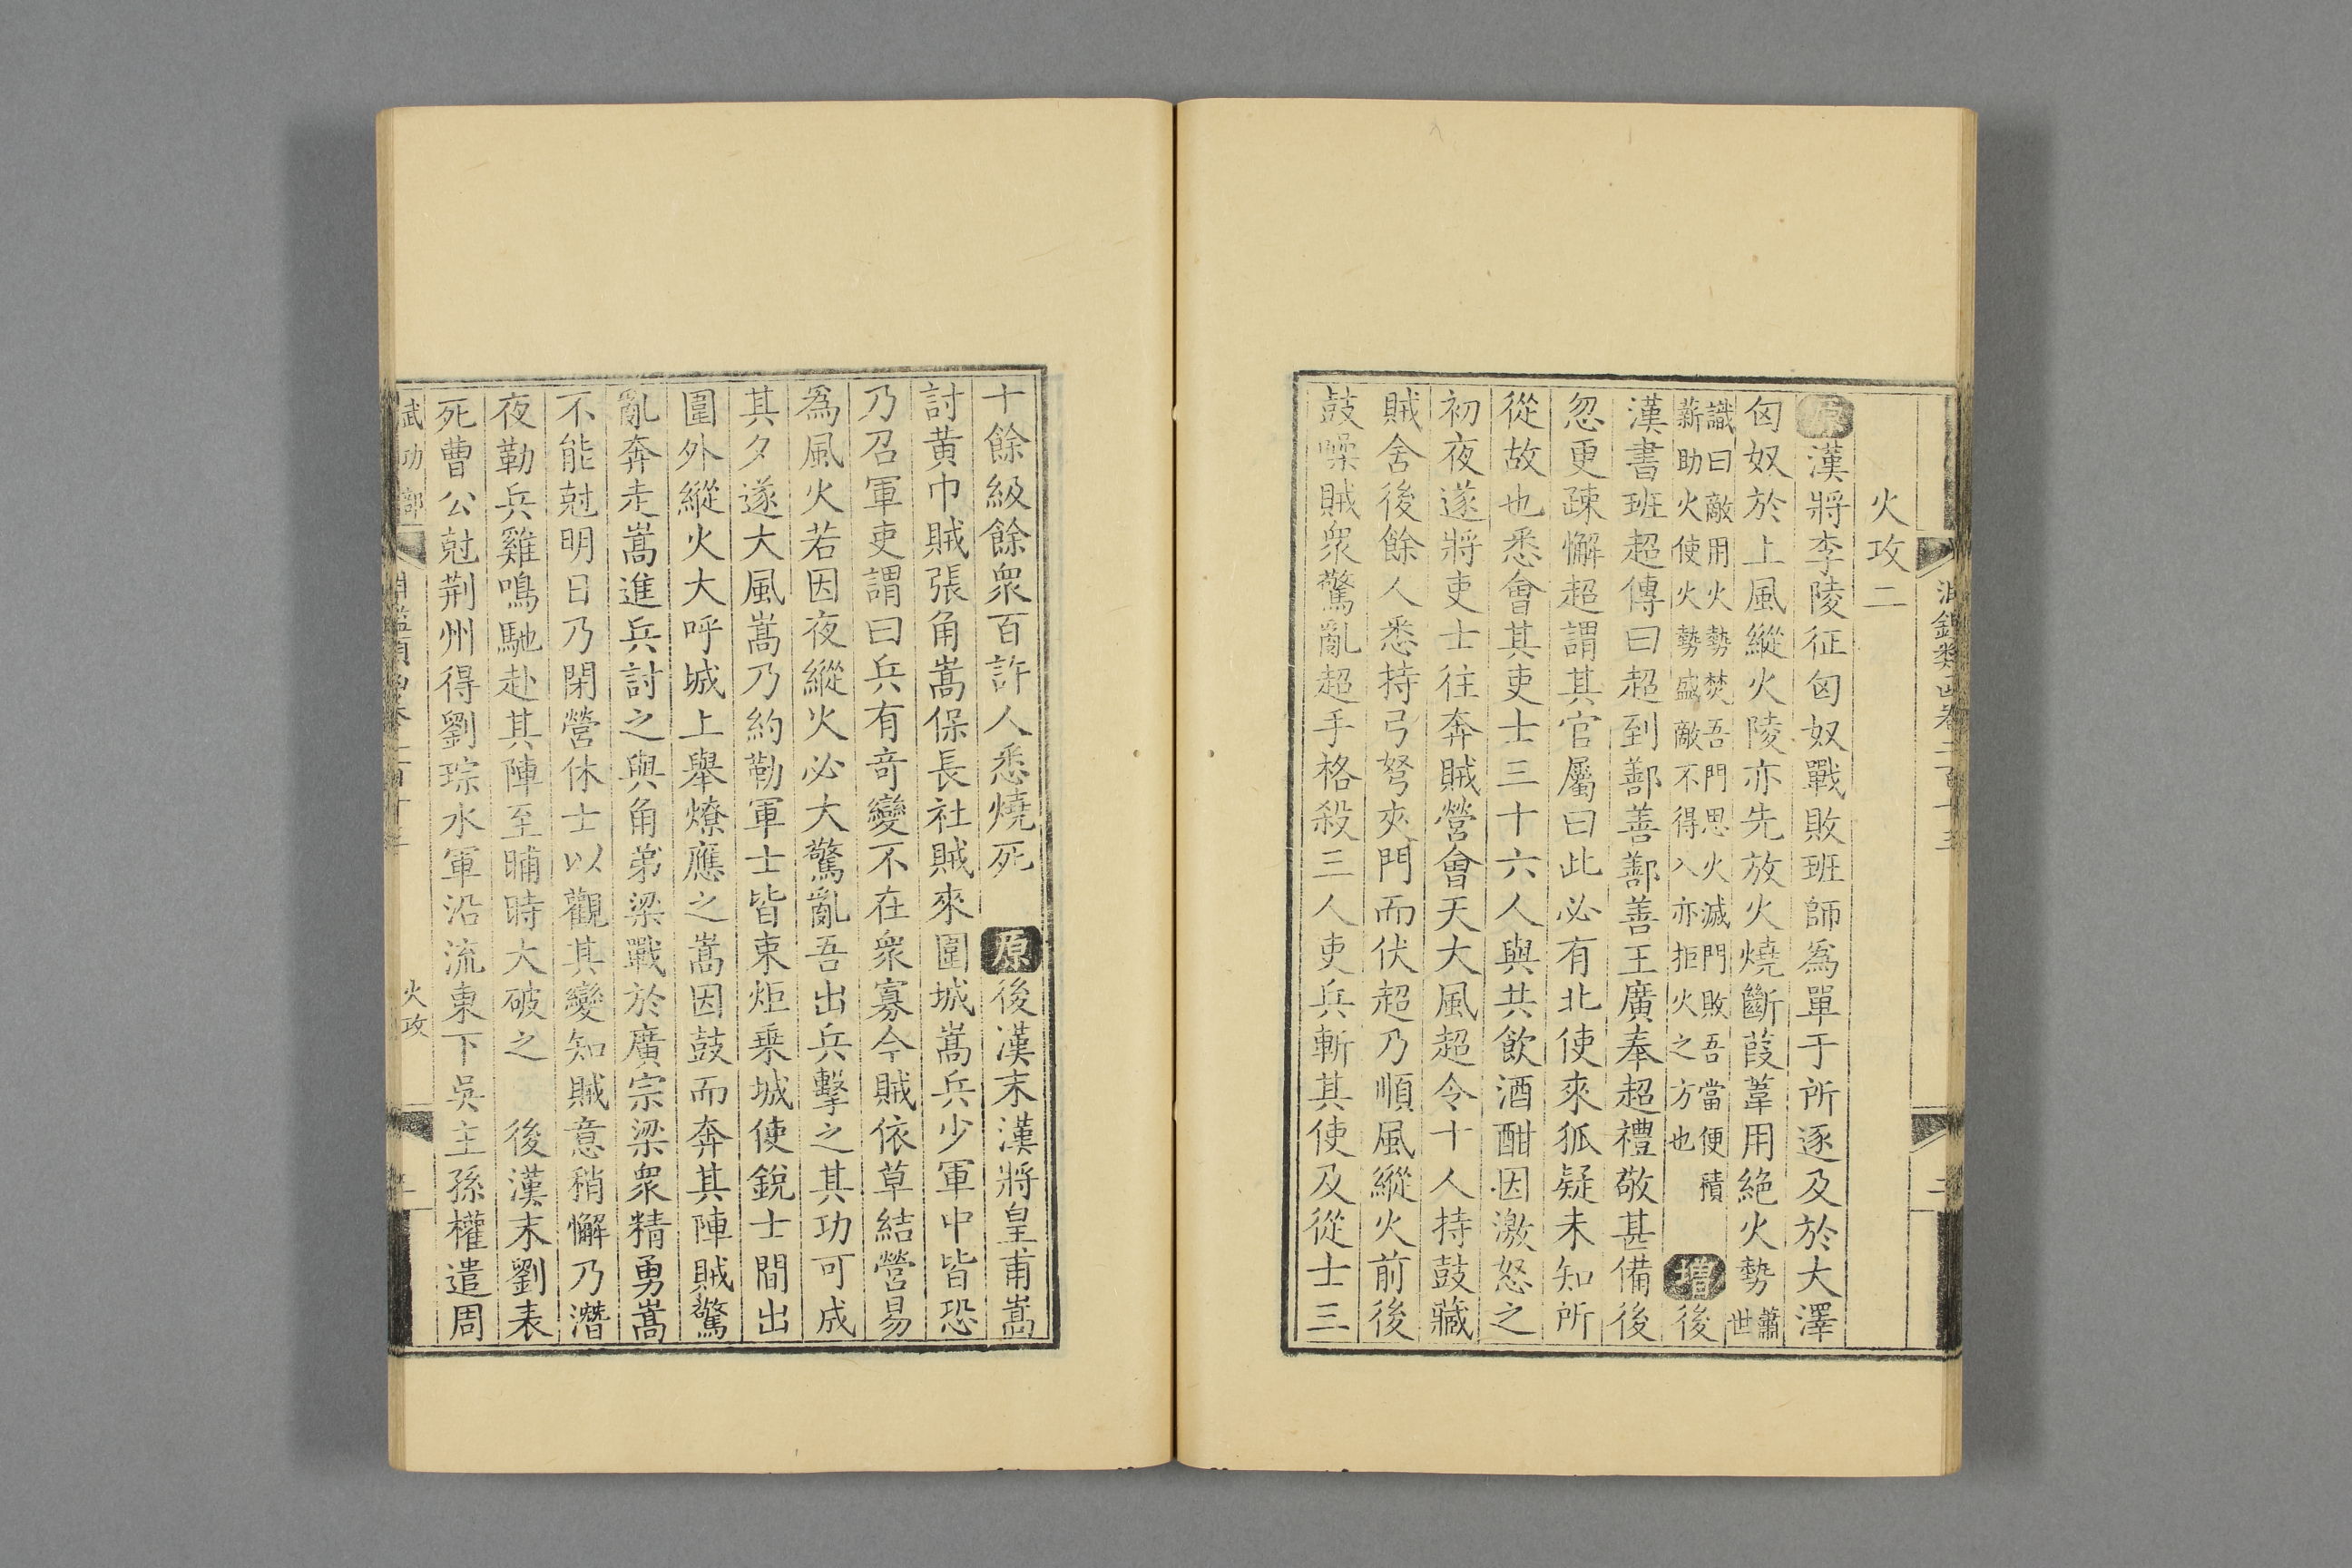 火攻二
原漢將李陵征匈奴戰敗班師爲單于所逐及於大澤
匈奴於上風縱火陵亦先放火燒斷葭葦用絶火勢蕭世
諴曰敵用火勢焚吾門思火滅門敗吾當便積
薪助火使火勢盛敵不得入亦拒火之方也
增後
漢書班超傳曰超到鄯善鄯善王廣奉超禮敬甚備後
忽更疎懈超謂其官屬曰此必有北使來狐疑未知所
從故也悉會其吏士三十六人與共飲酒酣因激怒之
初夜遂將吏士往奔賊營會天大風超令十人持鼓藏
賊舍後餘人悉持弓弩夾門而伏超乃順風縱火前後
鼓噪賊衆驚亂超手格殺三人吏兵斬其使及從士三
十餘級餘衆百許人悉燒死 原後漢末漢將皇甫嵩
討黄巾賊張角嵩保長社賊來圍城嵩兵少軍中皆恐
乃召軍吏謂曰兵有奇變不在衆寡今賊依草結營易
爲風火若因夜縱火必大驚亂吾出兵擊之其功可成
其夕遂大風嵩乃約勒軍士皆束炬乗城使銳士間出
圍外縱火大呼城上舉燎應之嵩因鼓而奔其陣賊驚
亂奔走嵩進兵討之與角弟梁戰於廣宗梁衆精勇嵩
不能尅明日乃閉營休士以觀其變知賊意稍懈乃潛
夜勒兵雞鳴馳赴其陣至晡時大破之 後漢末劉表
死曹公尅荆州得劉琮水軍沿流東下吳主孫權遣周
武功部
火攻